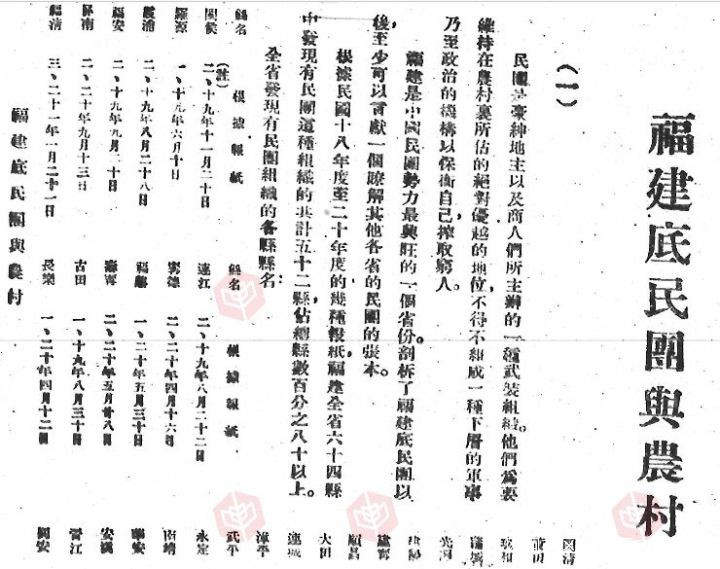 福建底民團與農村
(一)
民團是豪紳地主以及商人們所主辦的一種武裝組織。他們爲要
維持在農村裏所佔的絕對優越的地位,不得不組成一種下層的軍事
乃至政治的機構以保衛自己,搾取窮人。
福建是中國民團勢力最興旺的一個省份,剖析了福建底民團以
後,至少可以貢獻一個瞭解其他各省的民團的張本。
根據民國十八年度至二十年度的幾種報紙,福建全省六十四縣
中發現有民團這種組織的共計五十二縣,佔總縣數百分之八十以上。
全省發現有民團組織的各縣縣名:
縣名 (註)根據報紙 縣名 根據報紙
閩侯 二、十九年十一月二十日 連江 二、十九年八月二十二日
羅源 一、十九年六月十日 寧德 二、二十年四月十六日
霞浦 二、十九年八月二十八日 福鼎 一、二十年五月三十日
福安 二、十九年九月二十日 壽寧 二、二十年五月廿八日
屏南 二、二十年九月十三日 古田 一、十九年八月三十日
福清 三、二十一年一月二十一日 長樂 一、二十年四月十二日
福建底民團與農村
閩清
莆田
政和
建甯
順昌
大田
連城
漳平
武平
永定
南靖
華安
安溪
晉江
同安